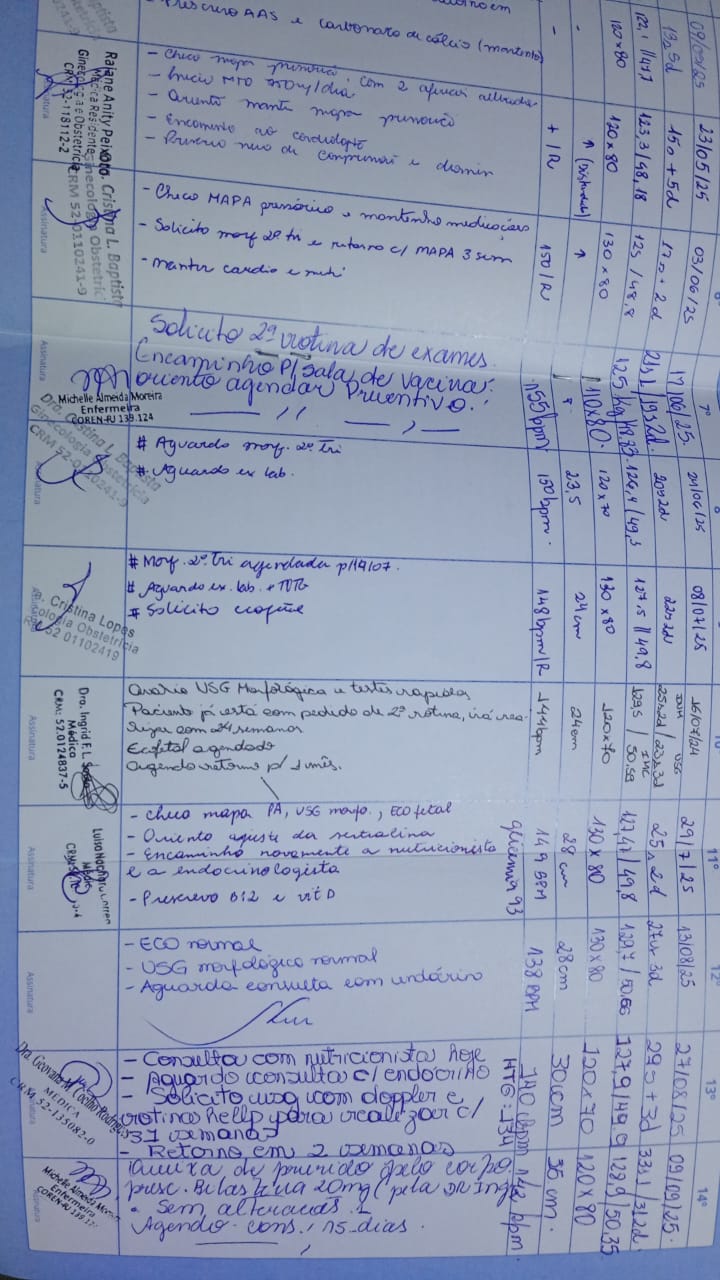 - Prescrevo AAS e carbonato de cálcio (mantenho)
09/05/25
19s 5d
122,1 // 47,7
120x80
-
-
- Checo mapa pressórico com 2 aferições alteradas
- Inicio MTD 750mg/dia
- Oriento manter mapa pressórico
- Encaminho ao cardiologista
23/05/25
15s + 5d
123,3 / 48,18
130x80
+ / R
Raiane Anity Peixoto
Médica Residente
Ginecologia e Obstetrícia
CRM 52-118112-2
Cristina L. Baptista
Ginecologia Obstetrícia
CRM 52-0110241-9
Assinatura
- Checo MAPA pressórico e mantenho medicações
- Solicito morf 2º tri e retorno c/ MAPA 3 sem
- Manter cardio e nutri
03/06/25
17s + 2d
125 / 48,8
130x80
150 / R
Assinatura
Solicito 2ª rotina de exames.
Encaminho P/ sala de vacina.
Oriento agendar Preventivo.
7º
17/06/25.
125 Kg
110x80.
155 bpm
Michelle Almeida Moreira
Enfermeira
COREN-RJ 139.124
Assinatura
# Aguardo morf. 2º tri
# Aguardo ex lab.
8
24/06/25
20s2d
126,4 / 49,3
120x70
23,5
150 bpm.
Dra. Cristina L. Baptista
Ginecologia Obstetrícia
CRM 52-0110241-9
# Morf. 2º tri agendada p/ 14/07.
# Aguardo ex. lab. + TOTG
# Solicito ecofetal
08/07/25
22s2d
127,5 // 49,8
130x80
24 cm
148 bpm/R
Dra. Cristina Lopes
Ginecologia Obstetrícia
CRM 52 01102419
Assinatura
Avalio USG Morfológica e testes rápidos
Paciente já está com pedido de 2ª rotina, irá rea-
lizar com 24 semanas
Ecofetal agendado
Agendo retorno p/ 1 mês.
10
16/07/24
DUM USG
25s2d / 23s3d
IMC
129,5 / 50.59
120x70
24cm
144bpm
Dra. Ingrid F. L.
Médica
CRM: 52.0124837-5
Assinatura
- Checo mapa PA, USG morfo., ECO fetal
- Oriento ajuste da sertralina
- Encaminho novamente a nutricionista
e a endocrinologista
- Prescrevo B12 e vit D
11º
29/7/25
25s 2d
127,4 / 49,8
130x80
28 cm
149 BPM
glicemia 93
Luisa
Assinatura
- ECO normal
- USG morfológico normal
- Aguarda consulta com endócrino
12º
13/08/25
27s 3d
129,7 / 50,66
130x80
28cm
138 BPM
Assinatura
- Consulta com nutricionista hoje
- Aguardo consulta c/ endócrino
- Solicito usg com doppler e
rotina hellp para realizar c/
31 semanas
- Retorno em 2 semanas
13º
27/08/25
29s + 3d
127,9 / 49,9
120x70
30cm
140 bpm
HTG: 134
Dra. Geovana M. Coelho Rodrigues
MÉDICA
CRM 52-135082-0
Queixa de prurido pelo corpo.
presc. Bilastina 20mg (pela DR Ingrid
• Sem alterações.
Agendo cons., 15 dias.
14º
09/09/25.
128,9 / 50,35
120x80
35 cm.
142 bpm.
Michelle Almeida Moreira
Enfermeira
COREN-RJ 139.124